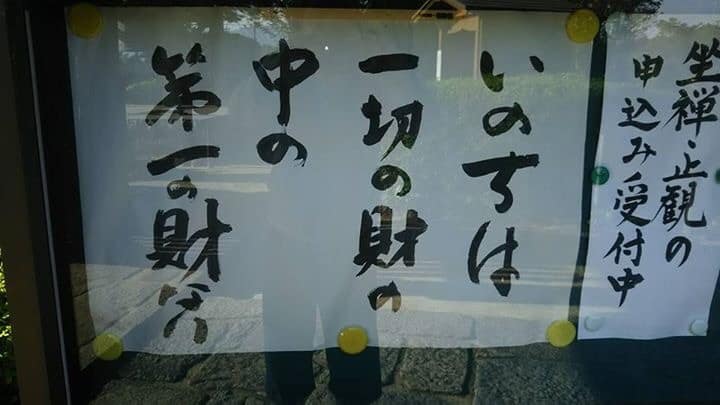 坐禅・止観の
申込み受付中
いのちは
一切の財の
中の
第一の財なり